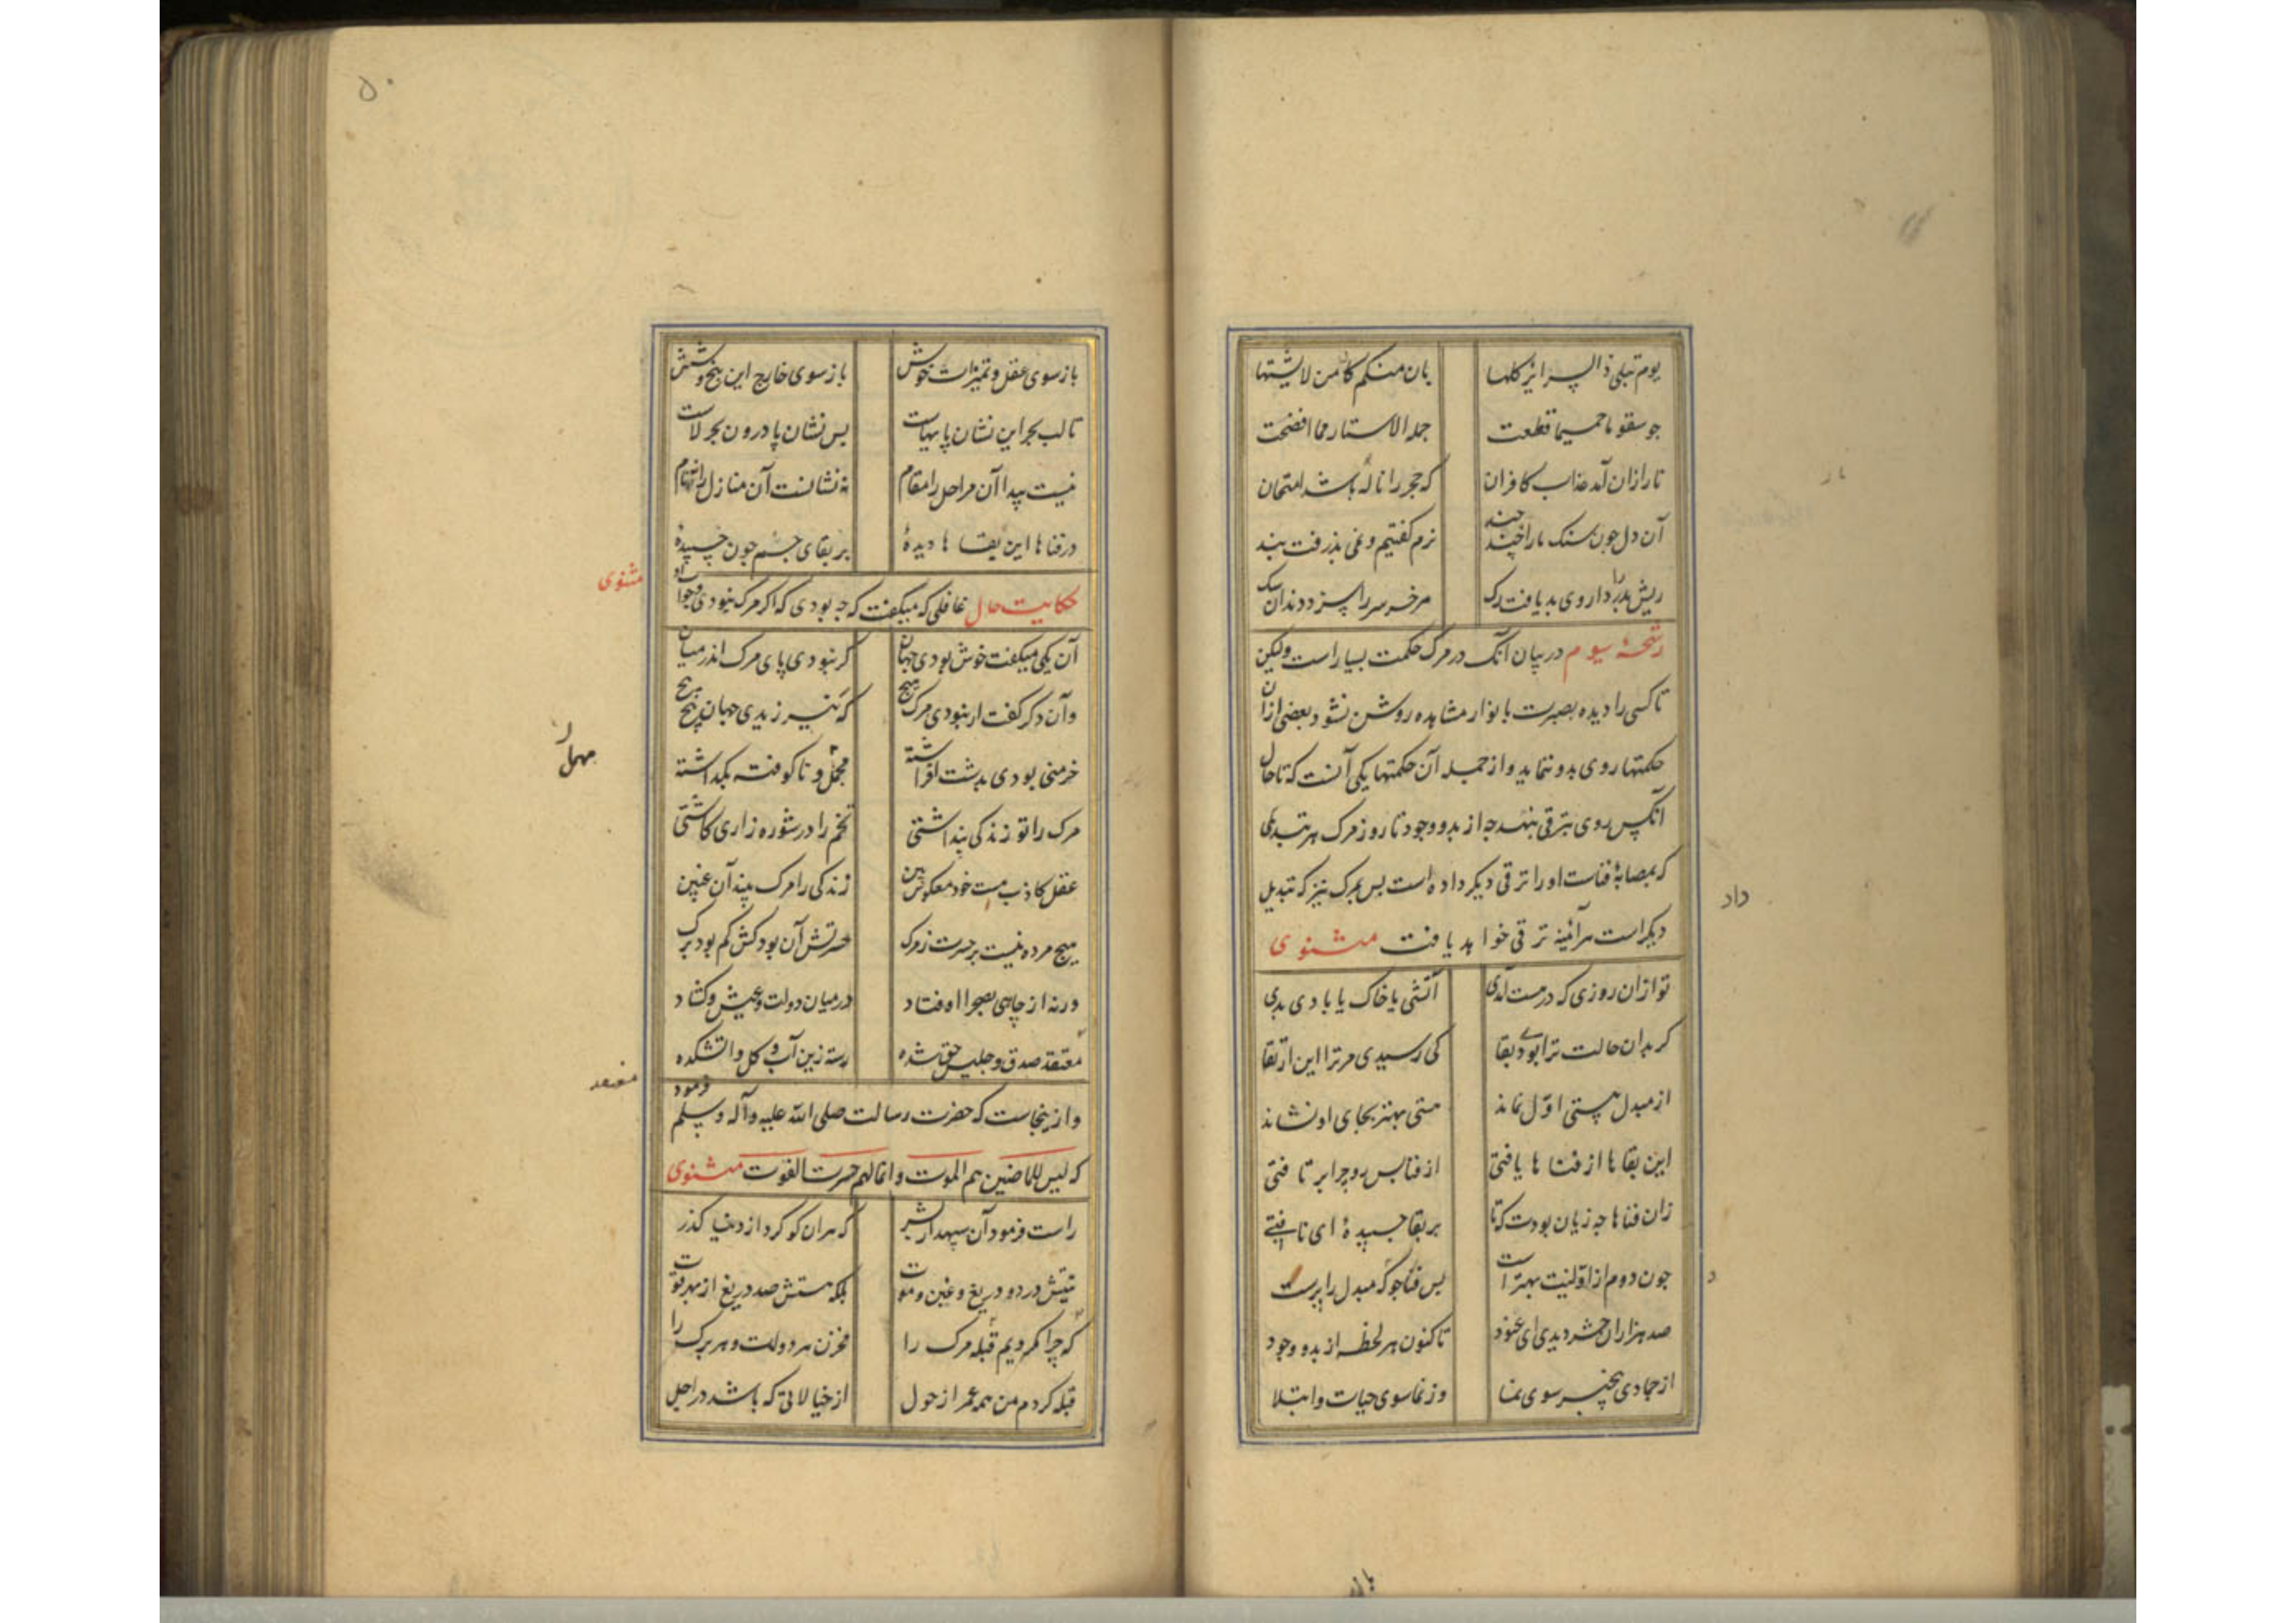 یوم تبلی ذا السرائر کلها بان منکم کامن لا یشتها
جو سقوا ماء حمیما قطعت جملة الاستار مما افضحت
نار ازان آمد عذاب کافران که حجر را نار باشد امتحان
آن دل جون سنک ما را جند جند نرم کفتیم و نمی بذرفت بند
ریش بد را داروی بد یافت رک مر خر سر را سزد دندان سک
رشحهٔ سیوم در بیان آنک در مرک حکمت بسیار است ولیکن
تا کسی را دیده بصیرت بانوار مشاهده روشن نشود بعضی ازان
حکمتها روی بدو ننماید و از جمله آن حکمتها یکی آنست که تا حال
آنکس روی بترقی بنهد جه از بدو وجود تا روز مرک هر تبدیلی
که بمصابهٔ فناست او را ترقی دیکر داده است بس بمرک نیز که تبدیل
دیکر است هر آئینه ترقی خواهد یافت مثنوی
تو ازان روزی که در هست آمدی آتشی یا خاک یا بادی بدی
کر بدان حالت ترا بودی بقا کی رسیدی مر ترا این ارتقا
از مبدل هستی اول نماند هستی بهتر بجای او نشاند
این بقاها از فناها یافتی از فنا بس رو چرا بر تافتی
زان فناها جه زیان بودت که تا بر بقا جسبیدهٔ ای نافتی
جون دوم از اولینت بهتر است بس فنا جو که مبدل را برست
صد هزاران حشر دیدی ای عنود تا کنون هر لحظه از بدو وجود
از جمادی بیخبر سوی نما وز نما سوی حیات و ابتلا
داد
د
۵۰
باز سوی عقل و تمییزات خوش باز سوی خارج این پنج و شش
تا لب بحر این نشان پایهاست بس نشان پا درون بحر لاست
نیست پیدا آن مراحل را مقام نه نشانست آن منازل را نه نام
در فناها این بقاها دیدهٔ بر بقای جسم جون چسبیدهٔ
حکایت حال غافلی که میکفت که جه بودی که اکر مرک نبودی و جواب او
مثنوی
آن یکی میکفت خوش بودی جهان کر نبودی پای مرک اندر میان
وآن دکر کفت ار نبودی مرک هیچ که نیرزیدی جهان پیچ پیچ
خرمنی بودی بدشت افراشته مهمل و ناکوفته بکذاشته
مهمل
مرک را تو زندکی بنداشتی تخم را در شوره زاری کاشتی
عقل کاذب هست خود معکوس بین زندکی را مرک بیند آن غبین
هیچ مرده نیست بر حسرت ز مرک حسرتش آن بود کش کم بود برک
ورنه از چاهی بصحرا اوفتاد در میان دولت و عیش و کشاد
مقعد صدق و جلیس حق شده رسته زین آب و کل و آتشکده
مقعد
و ازینجاست که حضرت رسالت صلی الله علیه وآله وسلم فرمود
که لیس للماضین هم الموت وانما لهم حسرت الفوت مثنوی
راست فرمود آن سپهدار بشر که هر آن کو کرد از دنیا کذر
نیتش درد و دریغ و غبن و موت بلکه هستش صد دریغ از بهر فوت
که چرا نکردیم قبله مرک را مخزن هر دولت و هر برک را
قبله کردم من همه عمر از حول از خیالاتی که باشد در اجل